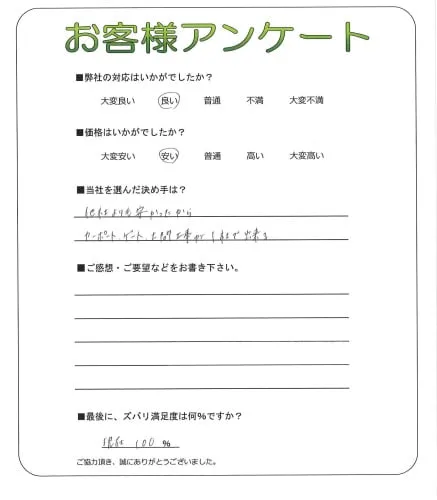 お客様アンケート
■弊社の対応はいかがでしたか？
大変良い 良い 普通 不満 大変不満
■価格はいかがでしたか？
大変安い 安い 普通 高い 大変高い
■当社を選んだ決め手は？
他社よりも安かったから
カーポート、ゲート、土間工事が1社で出来る
■ご感想・ご要望などをお書き下さい。
■最後に、ズバリ満足度は何％ですか？
現在 100 ％
ご協力頂き、誠にありがとうございました。